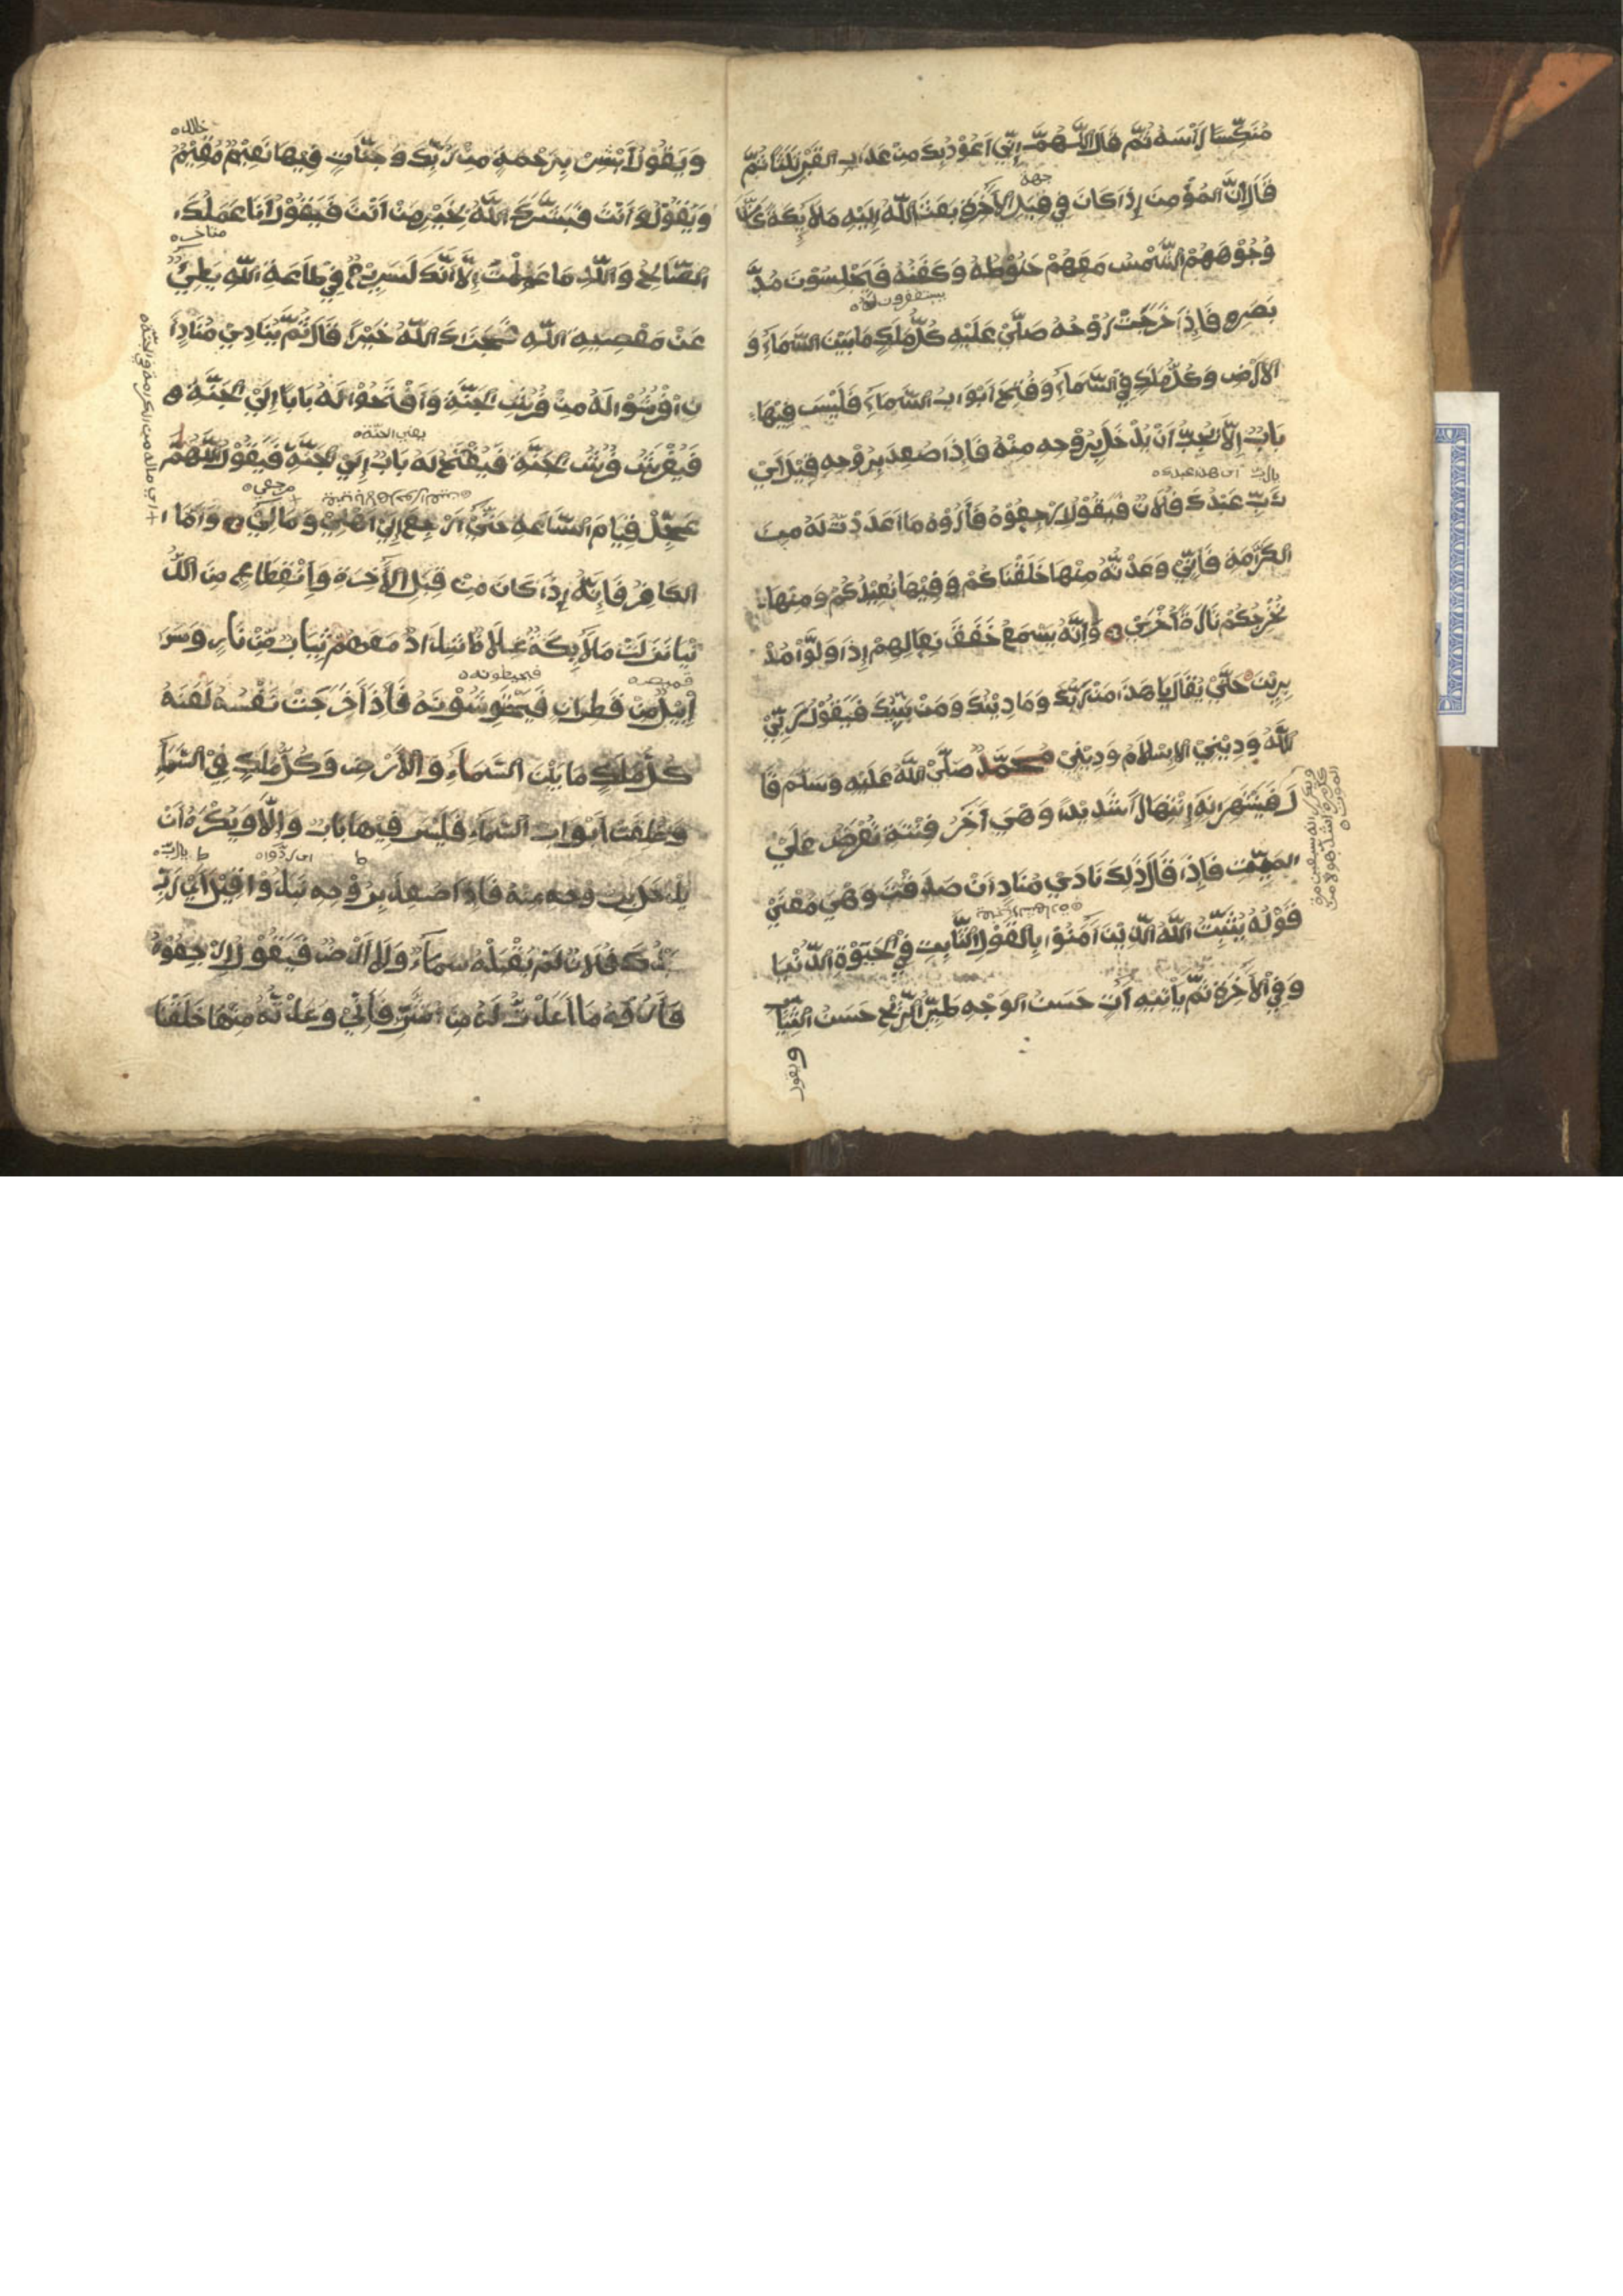 مُنَكِّسًا رَأْسَهُ ثُمَّ قَالَ اللّٰهُمَّ إِنِّي اَعُوْذُ بِكَ مِنْ عَذَابِ القَبْرِ ثَلٰثًا ثُمَّ
جهة
قَالَ إِنَّ المُؤْمِنَ إِذَا كَانَ فِي قِبَلِ الأَخِرَةِ بَعَثَ اللّٰهُ إِلَيْهِ مَلَائِكَةً كَانَّ
وُجُوْهَهُمْ الشَّمْسُ مَعَهُمْ حَنُوْطُهُ وَكَفَنُهُ فَيَجْلِسُوْنَ مُدَّ
يستغفرون له
بَصَرِهِ فَإِذَا خَرَجَتْ رُوْحُهُ صَلَّيْ عَلَيْهِ كُلُّ مَلَكٍ مَا بَيْنَ السَّمَاءِ وَ
الأَرْضِ وَكُلُّ مَلَكٍ فِي السَّمَاءِ وَفُتِحَ اَبْوَابُ السَّمَاءِ فَلَيْسَ فِيْهَا
بَابٌ إِلَّا يُحِبُّ اَنْ يُدْخَلَ بِرُوْحِهِ مِنْهُ فَإِذَا صُعِدَ بِرُوْحِهِ قِيْلَ اَيْ
يارب اي هذا عبدك
رَبِّ عَبْدُكَ فُلَانٌ فَيَقُوْلُ ارْجِعُوْهُ فَأَرُوْهُ مَا اَعْدَدْتُ لَهُ مِنَ
الكَرَامَةِ فَأَنِّي وَعَدْتُّهُ مِنْهَا خَلَقْنَاكُمْ وَفِيْهَا نُعِيْدُكُمْ وَمِنْهَا
نُخْرِجُكُمْ تَارَةً أُخْرَيْ وَإِنَّهُ يَسْمَعُ خَفَقَ نِعَالِهِمْ إِذَا وَلَّوْا مُدْ
بِرِيْنَ حَتَّيْ يُقَالَ يَا هٰذَا مَنْ رَبُّكَ وَمَا دِيْنُكَ وَمَنْ نَبِيُّكَ فَيَقُوْلُ رَبِّيْ
اللّٰهُ وَدِيْنِيْ الإِسْلَامُ وَدِيْنِيْ مُحَمَّدٌ صَلَّيْ اللّٰهُ عَلَيْهِ وَسَلَّمَ قَا
لَ فَيَنْتَهِرَانِهِ إِنْتِهَارًا شَدِيْدًا وَهِيَ آخَرُ فِتْنَةٍ تُعْرَضُ عَلَيْ
المَيِّتِ فَإِذَا قَالَ ذٰلِكَ نَادَيْ مُنَادٍ اَنْ صَدَقْتَ وَهْيَ مَعْنَيْ
قَوْلِهُ يُثَبِّتُ اللّٰهُ الَّذِيْنَ اٰمَنُوْا بِالقَوْلِ الثَّابِتِ فِيْ الحَيٰوةِ الدُّنْيَا
وَفِيْ الأَخِرَةِ ثُمَّ يَأْتِيْهِ اٰتٍ حَسَنُ الوَجْهِ طَيِّبُ الرِّيْحِ حَسَنُ الثِّيَابِ
ويقول
وَيَقُوْلُ اَبْشِرْ بِرَحْمَةٍ مِنْ رَبِّكَ وَجَنَّاتٍ فِيْهَا نَعِيْمٌ مُقِيْمٌ
وَيَقُوْلُ وَاَنْتَ فَبَشَّرَكَ اللّٰهُ بِخَيْرٍ مَنْ اَنْتَ فَيَقُوْلُ اَنَا عَمَلُكَ
الصَّالِحُ وَاللّٰهِ مَا عَلِمْتُ إِلَّا اَنَّكَ لَسَرِيْعٌ فِيْ طَاعَةِ اللّٰهِ بَطِيْءٌ
عَنْ مَعْصِيَةِ اللّٰهِ فَجَزَاكَ اللّٰهُ خَيْرًا قَالَ ثُمَّ يُنَادِيْ مُنَادٍ اَ
نِ افْرُشُوْا لَهُ مِنْ فُرُشِ الجَنَّةِ وَافْتَحُوْا لَهُ بَابًا إِلَيْ الجَنَّةِ
يعني الجنة
فَيُفْرَشُ فُرُشُ الجَنَّةِ فَيُفْتَحُ لَهُ بَابٌ إِلَيْ الجَنَّةِ فَيَقُوْلُ اللّٰهُمَّ
مرجعي
عَجِّلْ قِيَامَ السَّاعَةِ حَتَّيْ اَرْجِعَ إِلَيْ اَهْلِيْ وَمَالِيْ وَاَمَّا ا
الكَافِرُ فَإِنَّهُ إِذَا كَانَ مِنْ قِبَلِ الأَخِرَةِ وَاِنْقِطَاعٍ مِنَ الدُّ
نْيَا نَزَلَتْ مَلَائِكَةٌ غِلَاظٌ شِدَادٌ مَعَهُمْ ثِيَابٌ مِنْ نَارٍ وَسَرَ
قميصه فيحيطونه
اٰبِيْلُ مِنْ قَطِرَانٍ فَيَحْتَوِشُوْنَهُ فَأِذَا خَرَجَتْ نَفْسُهُ لَعَنَهُ
كُلُّ مَلَكٍ مَا بَيْنَ السَّمَاءِ وَالأَرْضِ وَكُلُّ مَلَكٍ فِيْ السَّمَاءِ
وَغُلِقَتْ اَبْوَابُ السَّمَاءِ فَلَيْسَ فِيْهَا بَابٌ وَإِلَّا وَيَكْرَهُ اَنْ
يارب
يُدْخَلَ بِرُوْحِهِ مِنْهُ فَإِذَا صُعِدَ بِرُوْحِهِ نَبَذُوْا قِيْلَ اَيْ رَبِّ
عَبْدُكَ فُلَانٌ لَمْ يَقْبَلْهُ سَمَاءٌ وَلَا اَرْضٌ فَيَقُوْلُ ارْجِعُوْهُ
فَأَرُوْهُ مَا اَعْدَدْتُّ لَهُ مِنَ الشَّرِّ فَأَنِّيْ وَعَدْتُّهُ مِنْهَا خَلَقْنَا